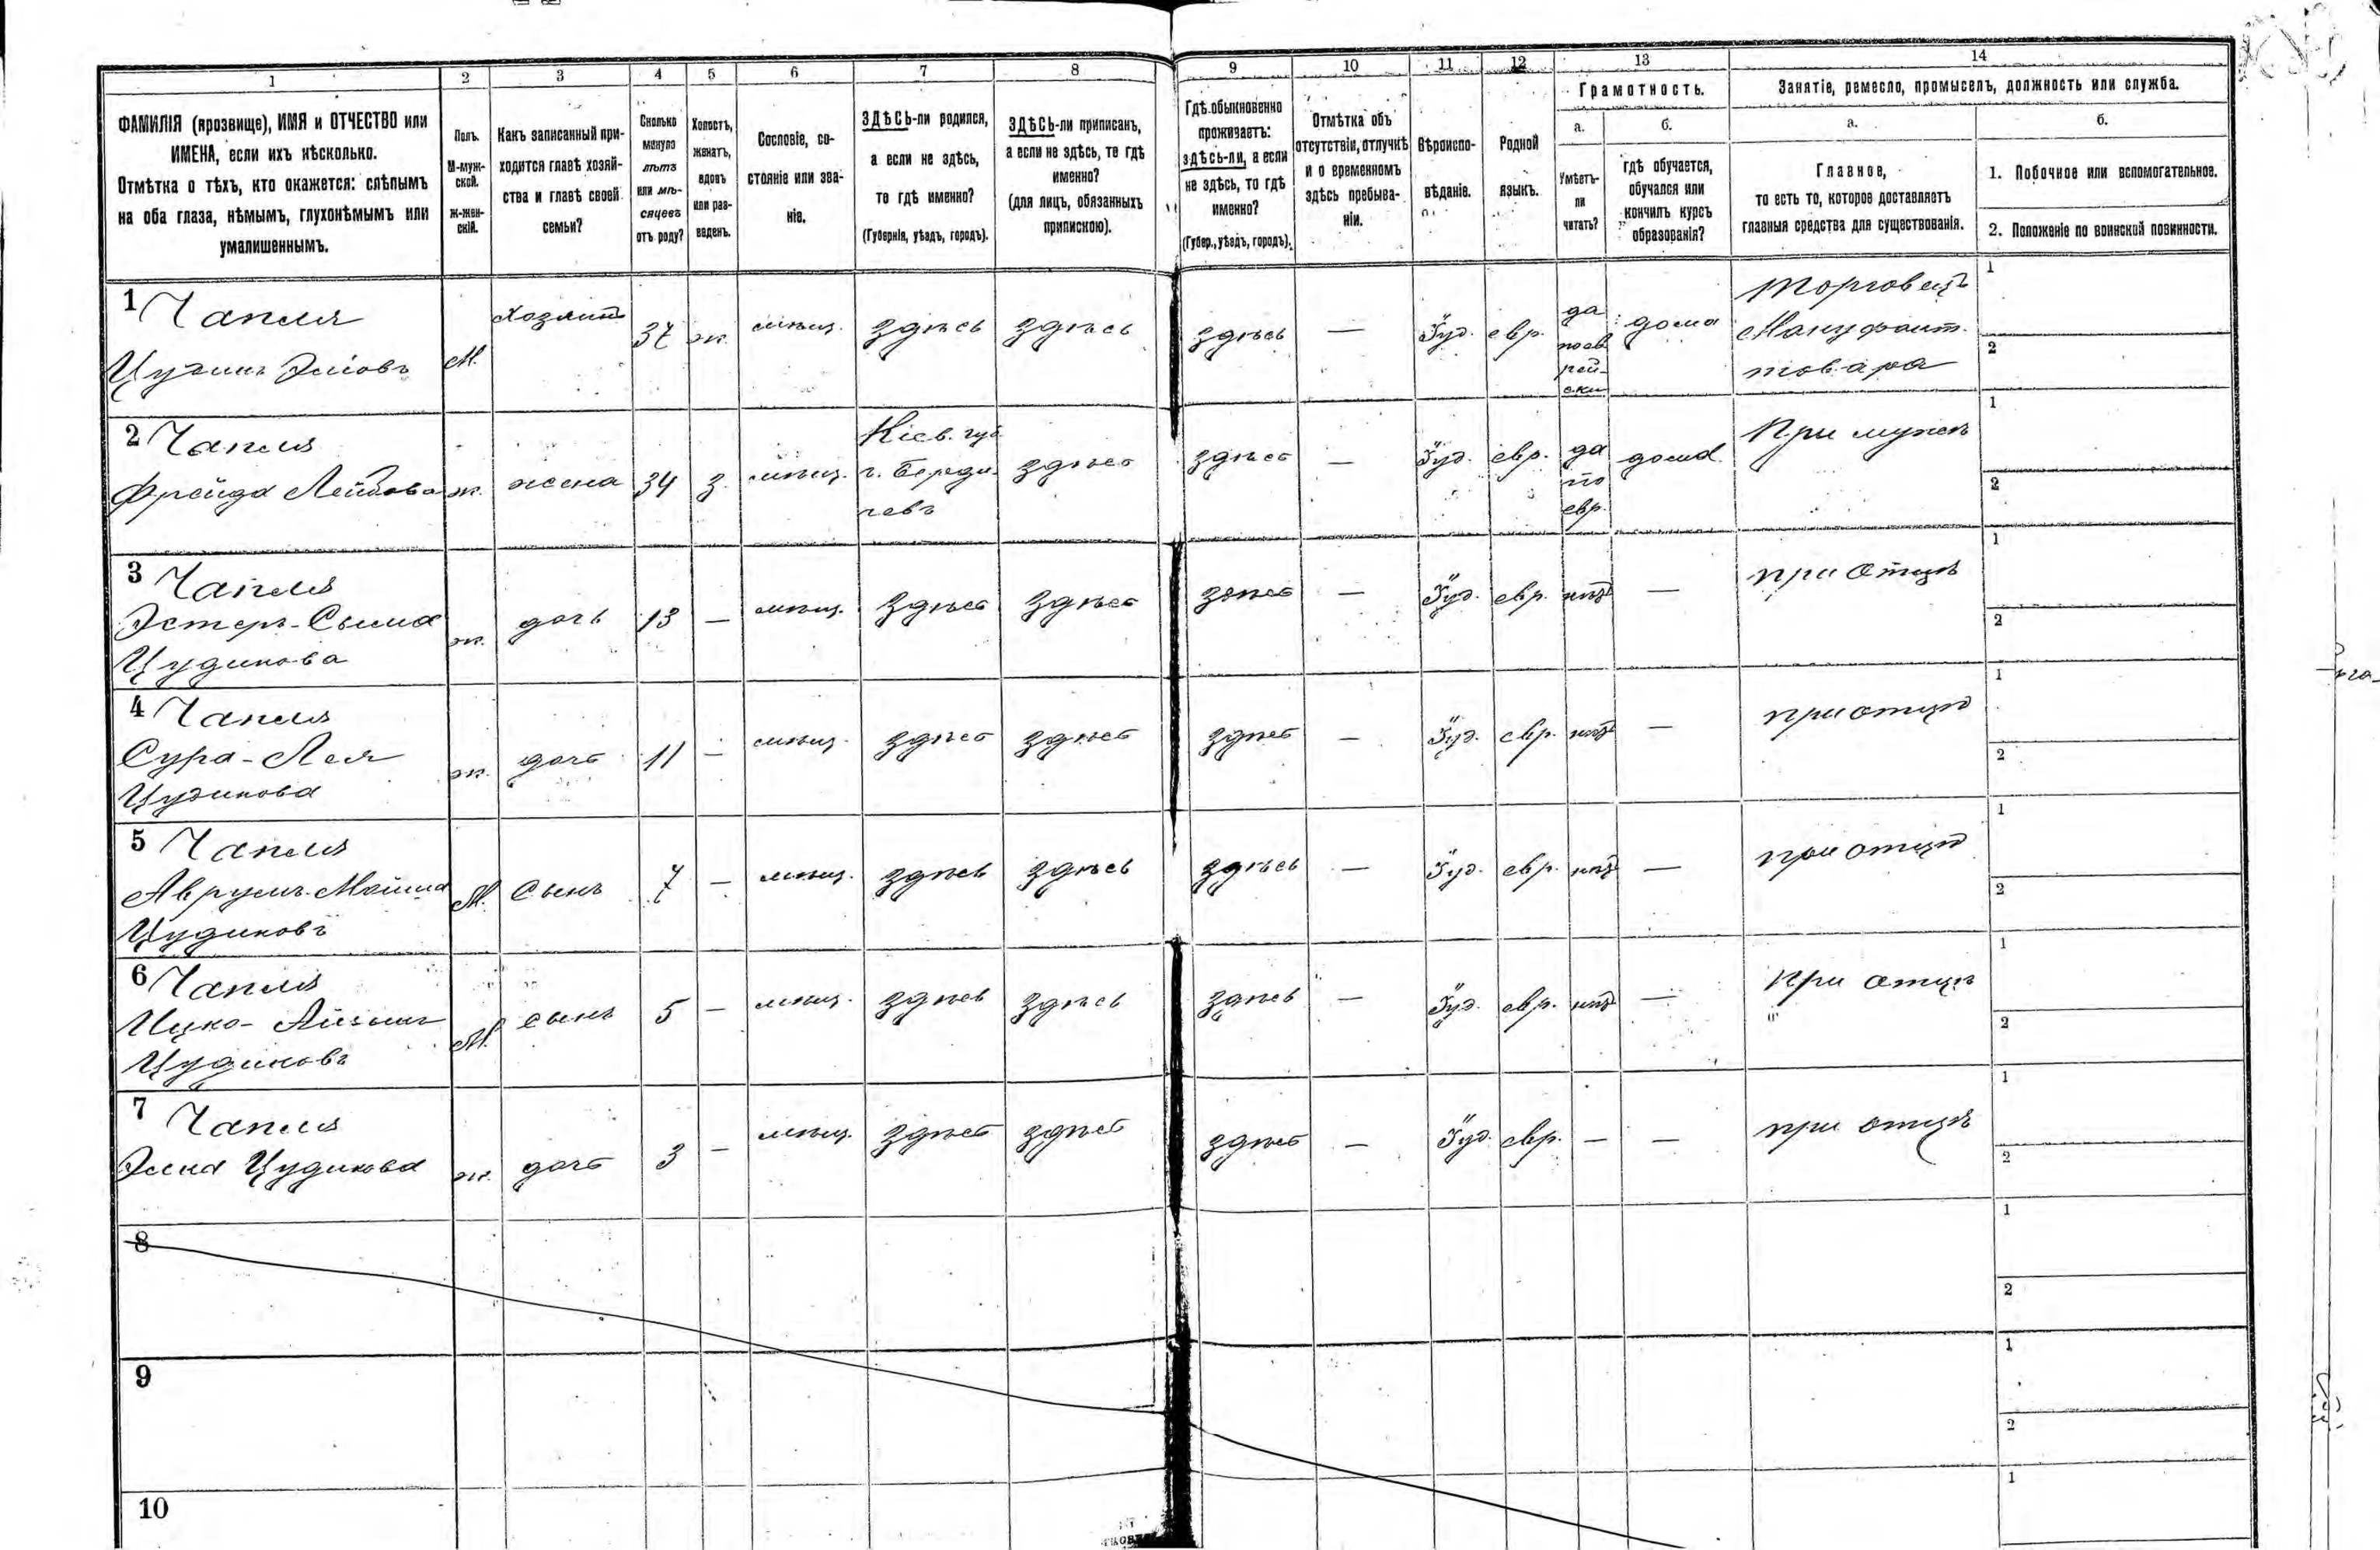 1
2
3
4
5
6
7
8
9
10
11
12
13
14
ФАМИЛІЯ (прозвище), ИМЯ и ОТЧЕСТВО или
ИМЕНА, если ихъ нѣсколько.
Отмѣтка о тѣхъ, кто окажется: слѣпымъ
на оба глаза, нѣмымъ, глухонѣмымъ или
умалишеннымъ.
Полъ.
М-муж-
ской.
Ж-жен-
скій.
Какъ записанный при-
ходится главѣ хозяй-
ства и главѣ своей
семьи?
Сколько
минуло
лѣтъ
или мѣ-
сяцевъ
отъ роду?
Холостъ,
женатъ,
вдовъ
или раз-
веденъ.
Сословіе, со-
стояніе или зва-
ніе.
ЗДѢСЬ-ли родился,
а если не здѣсь,
то гдѣ именно?
(Губернія, уѣздъ, городъ).
ЗДѢСЬ-ли приписанъ,
а если не здѣсь, то гдѣ
именно?
(для лицъ, обязанныхъ
припискою).
Гдѣ обыкновенно
проживаетъ:
здѣсь-ли, а если
не здѣсь, то гдѣ
именно?
(Губер., уѣздъ, городъ).
Отмѣтка объ
отсутствіи, отлучкѣ
и о временномъ
здѣсь пребыва-
ніи.
Вѣроиспо-
вѣданіе.
Родной
языкъ.
Грамотность.
а.
Умѣетъ-
ли
читать?
б.
гдѣ обучается,
обучался или
кончилъ курсъ
образованія?
Занятіе, ремесло, промыселъ, должность или служба.
а.
Главное,
то есть то, которое доставляетъ
главныя средства для существованія.
б.
1. Побочное или вспомогательное.
2. Положеніе по воинской повинности.
1 Чапля
Цудикъ
М.
хозяинъ
37
ж.
мѣщ.
здѣсь
здѣсь
здѣсь
—
Іуд.
евр.
да
по ев
рей-
ски
дома
Торговецъ
Мануфакт.
товара
1
2
2 Чапля
Фрейда Лейбова
ж.
жена
34
з.
мѣщ.
Кіев. губ
г. Берди
чевъ
здѣсь
здѣсь
—
Іуд.
евр.
да
по
евр.
дома
При мужѣ
1
2
3 Чапля
Эстеръ-Сыма
Цудикова
ж.
дочь
13
—
мѣщ.
здѣсь
здѣсь
здѣсь
—
Іуд.
евр.
нѣтъ
—
при Отцѣ
1
2
4 Чапля
Сура-Лея
Цудикова
ж.
дочь
11
—
мѣщ.
здѣсь
здѣсь
здѣсь
—
Іуд.
евр.
нѣтъ
—
при отцѣ
1
2
5 Чапля
Аврумъ-Мойша
Цудиковъ
М.
Сынъ
7
—
мѣщ.
здѣсь
здѣсь
здѣсь
—
Іуд.
евр.
нѣтъ
—
при отцѣ
1
2
6 Чапля
Ицко-Айзикъ
Цудиковъ
М.
сынъ
5
—
мѣщ.
здѣсь
здѣсь
здѣсь
—
Іуд.
евр.
нѣтъ
—
При отцѣ
1
2
7 Чапля
Цудикова
ж.
дочь
3
—
мѣщ.
здѣсь
здѣсь
здѣсь
—
Іуд.
евр.
—
—
при отцѣ
1
2
8
1
2
9
1
2
10
1